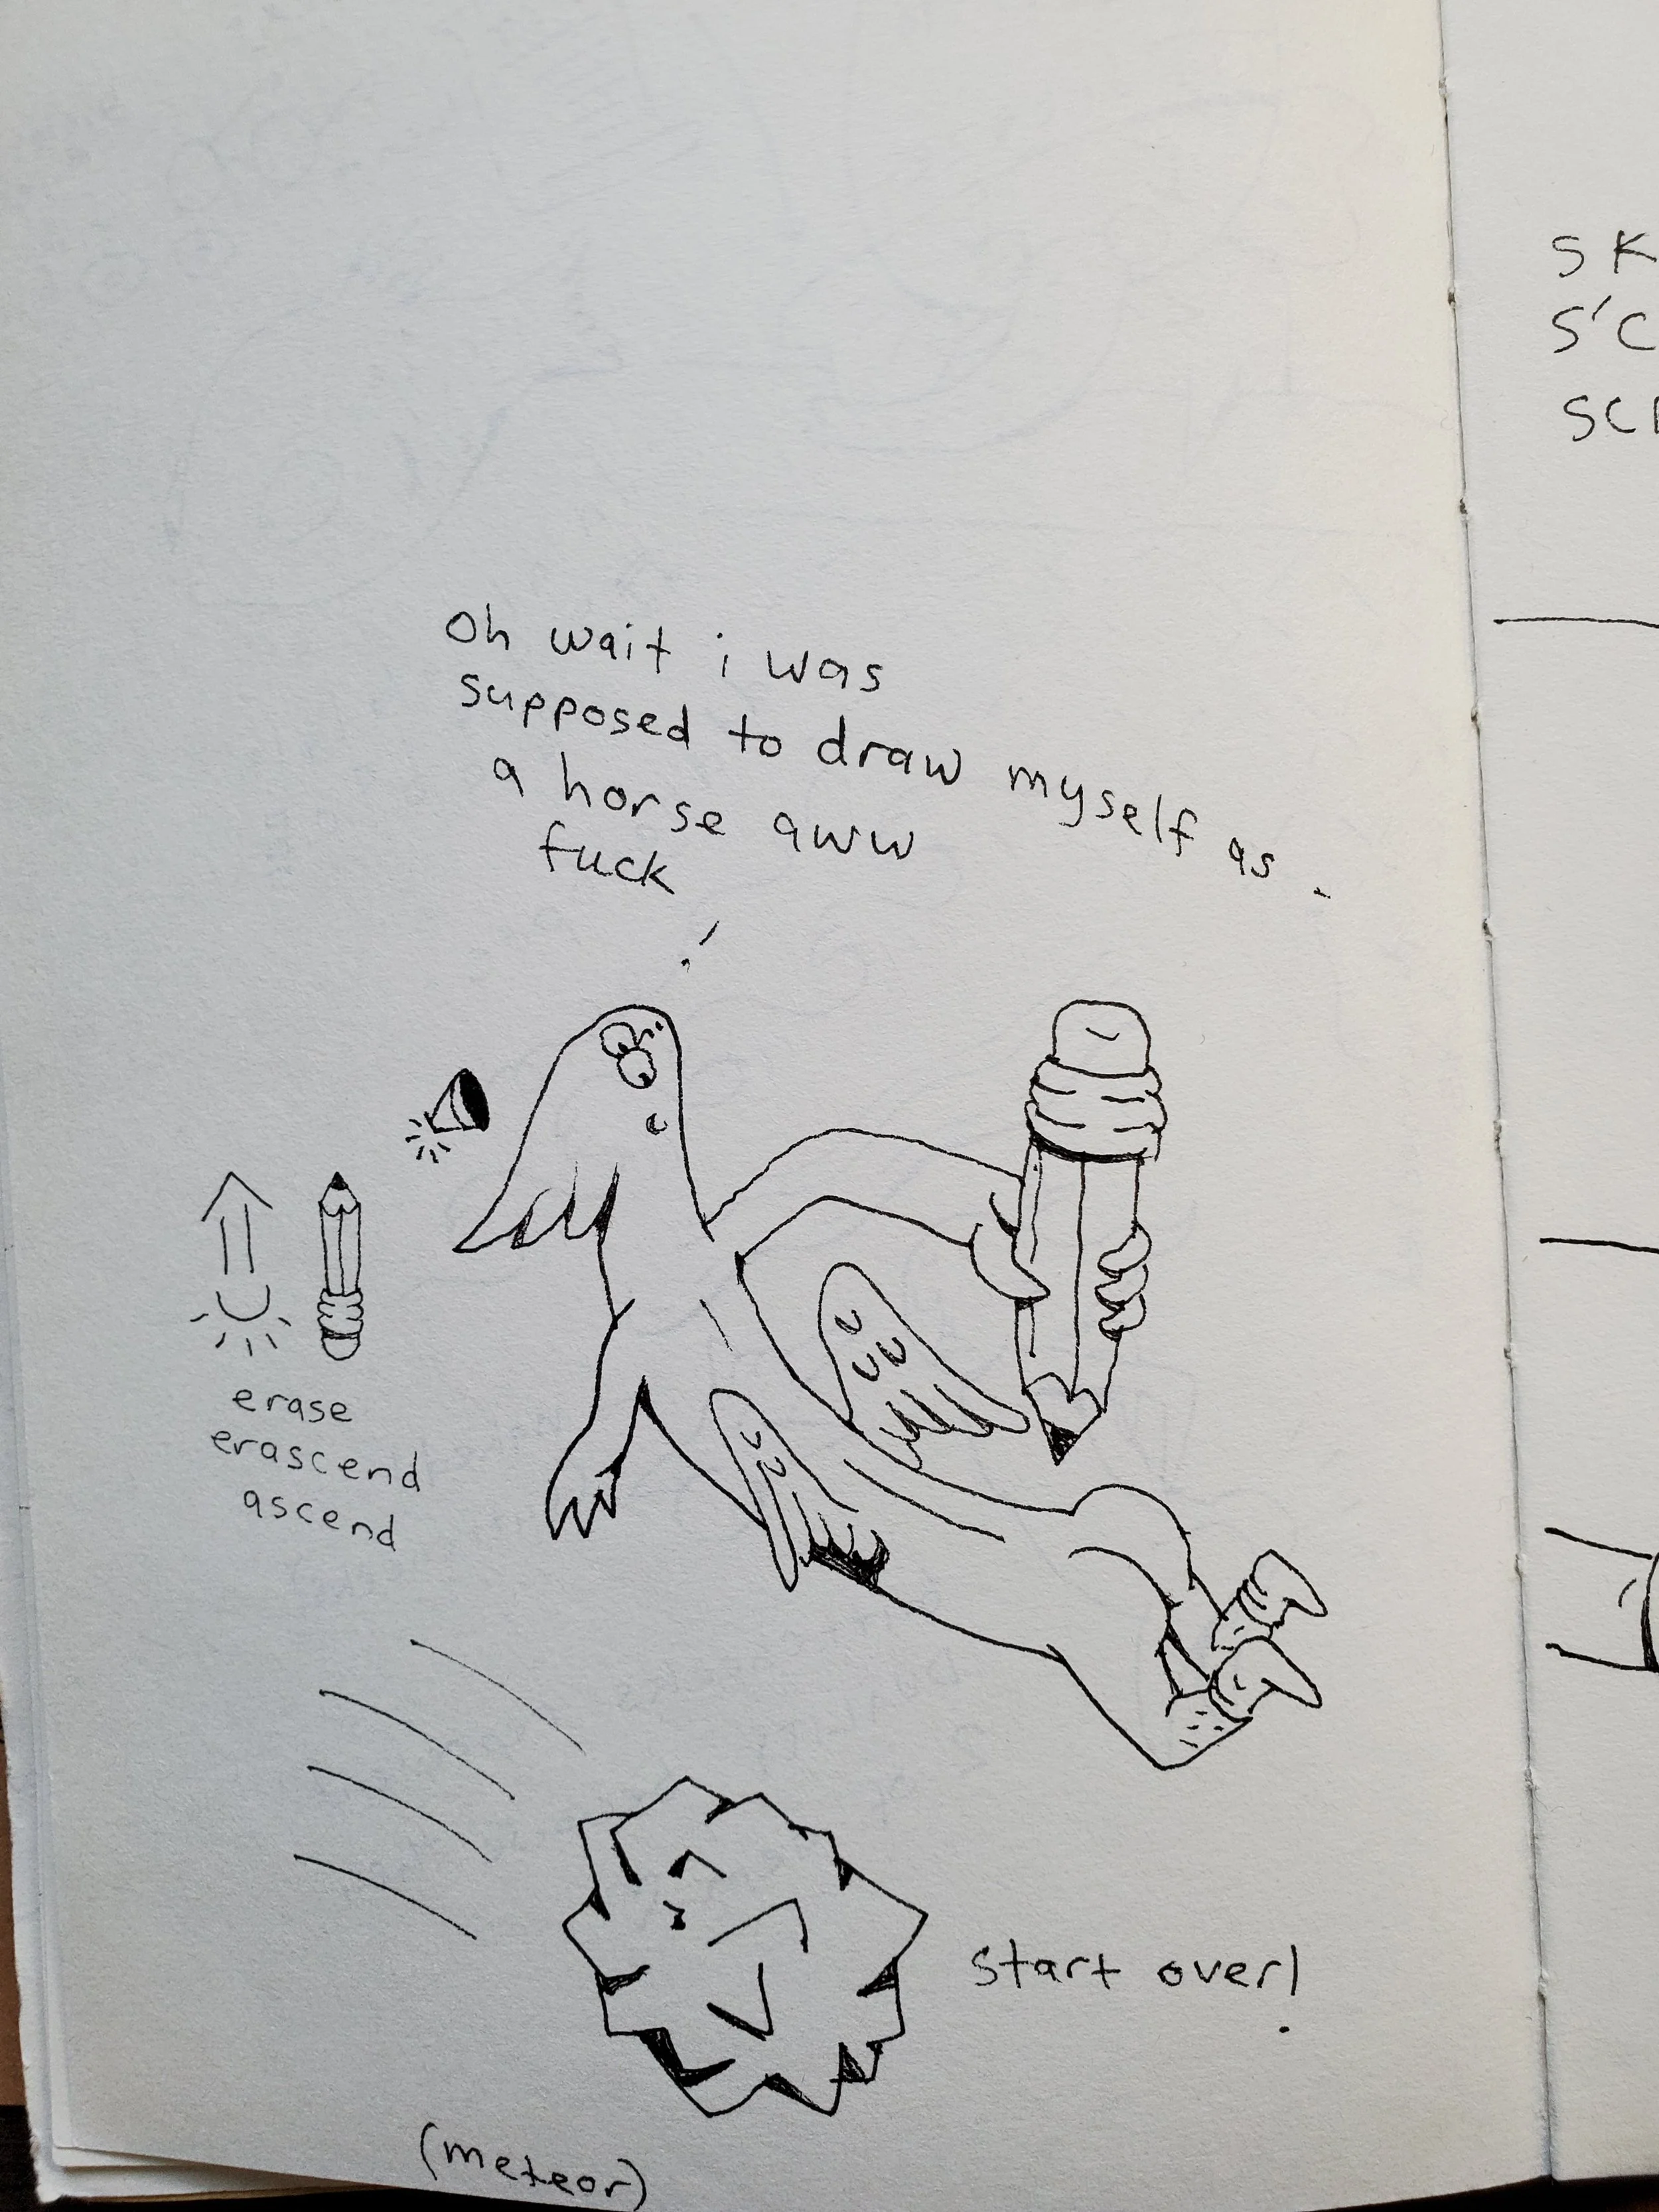 Oh wait i was
supposed to draw myself as
a horse aww
fuck!
erase
erascend
ascend
start over!
(meteor)
SK
S'C
SC